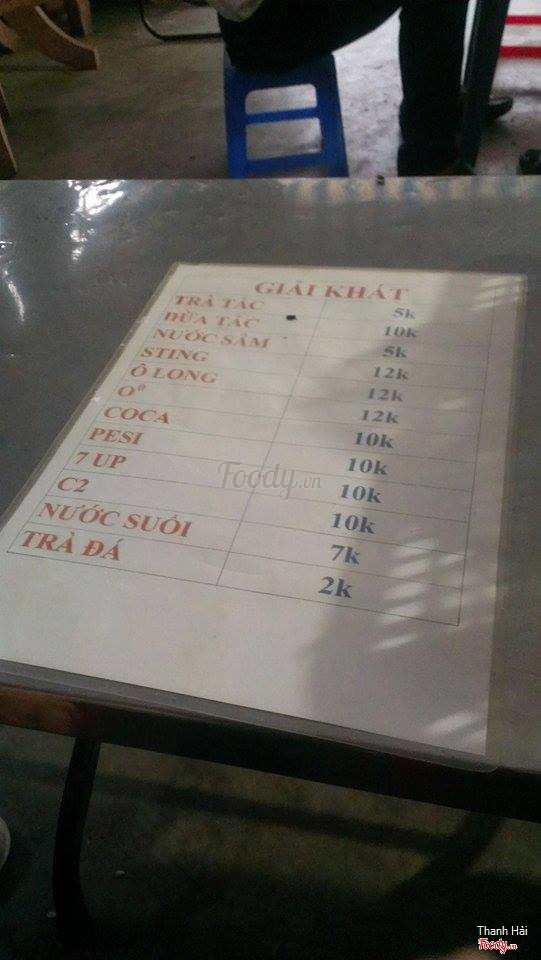 GIẢI KHÁT
TRÀ TẮC 5k
DỪA TẮC 10k
NƯỚC SÂM 5k
STING 12k
Ô LONG 12k
O⁰ 12k
COCA 10k
PESI 10k
7 UP 10k
C2 10k
NƯỚC SUỐI 7k
TRÀ ĐÁ 2k
Foody.vn
Thanh Hải
Foody.vn